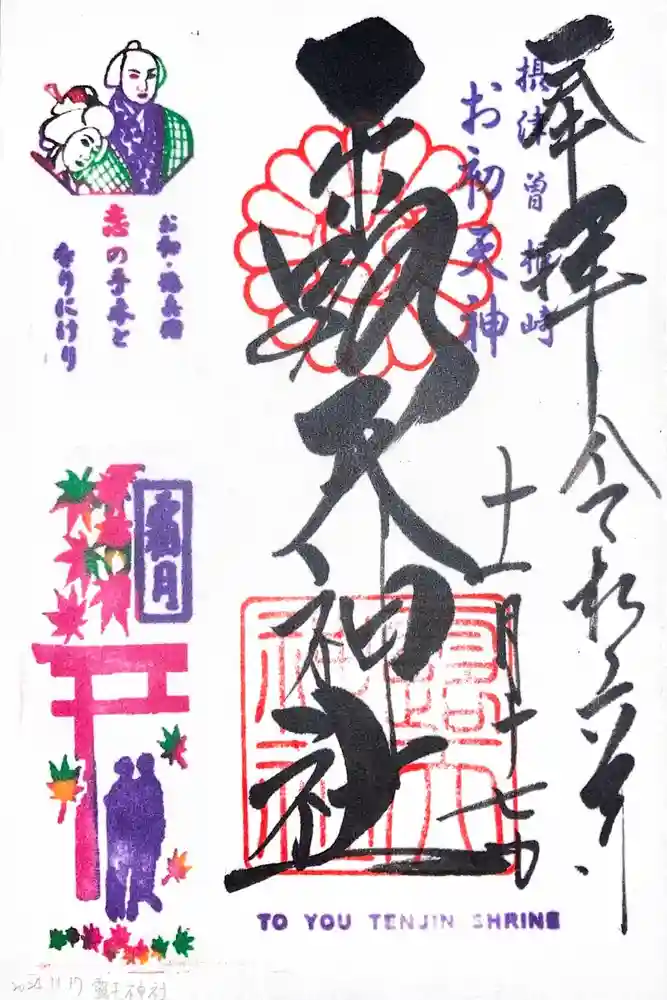 奉拝
令和六年
十一月十七日
摂津 曽根崎
お初天神
露天神社
露天神社
お初・徳兵衛
恋の手本と
なりにけり
霜月
TO YOU TENJIN SHRINE
2024.11.17 露天神社